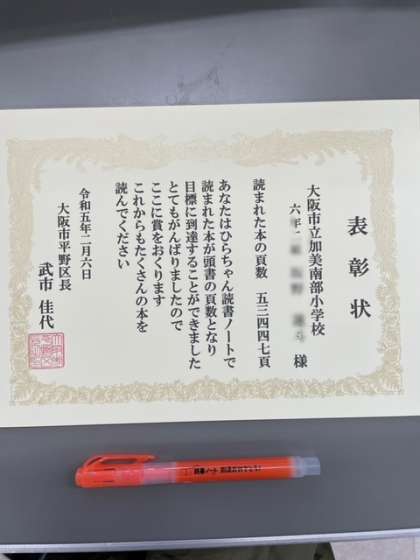 表彰状
大阪市立加美南部小学校
六年
様
読まれた本の頁数 五三四四七頁
あなたはひらちゃん読書ノートで
読まれた本が頭書の頁数となり
目標に到達することができました
とてもがんばりましたので
ここに賞をおくります
これからもたくさんの本を
読んでください
令和五年二月六日
大阪市平野区長
武市 佳代
読書ノート 到達おめでとう!